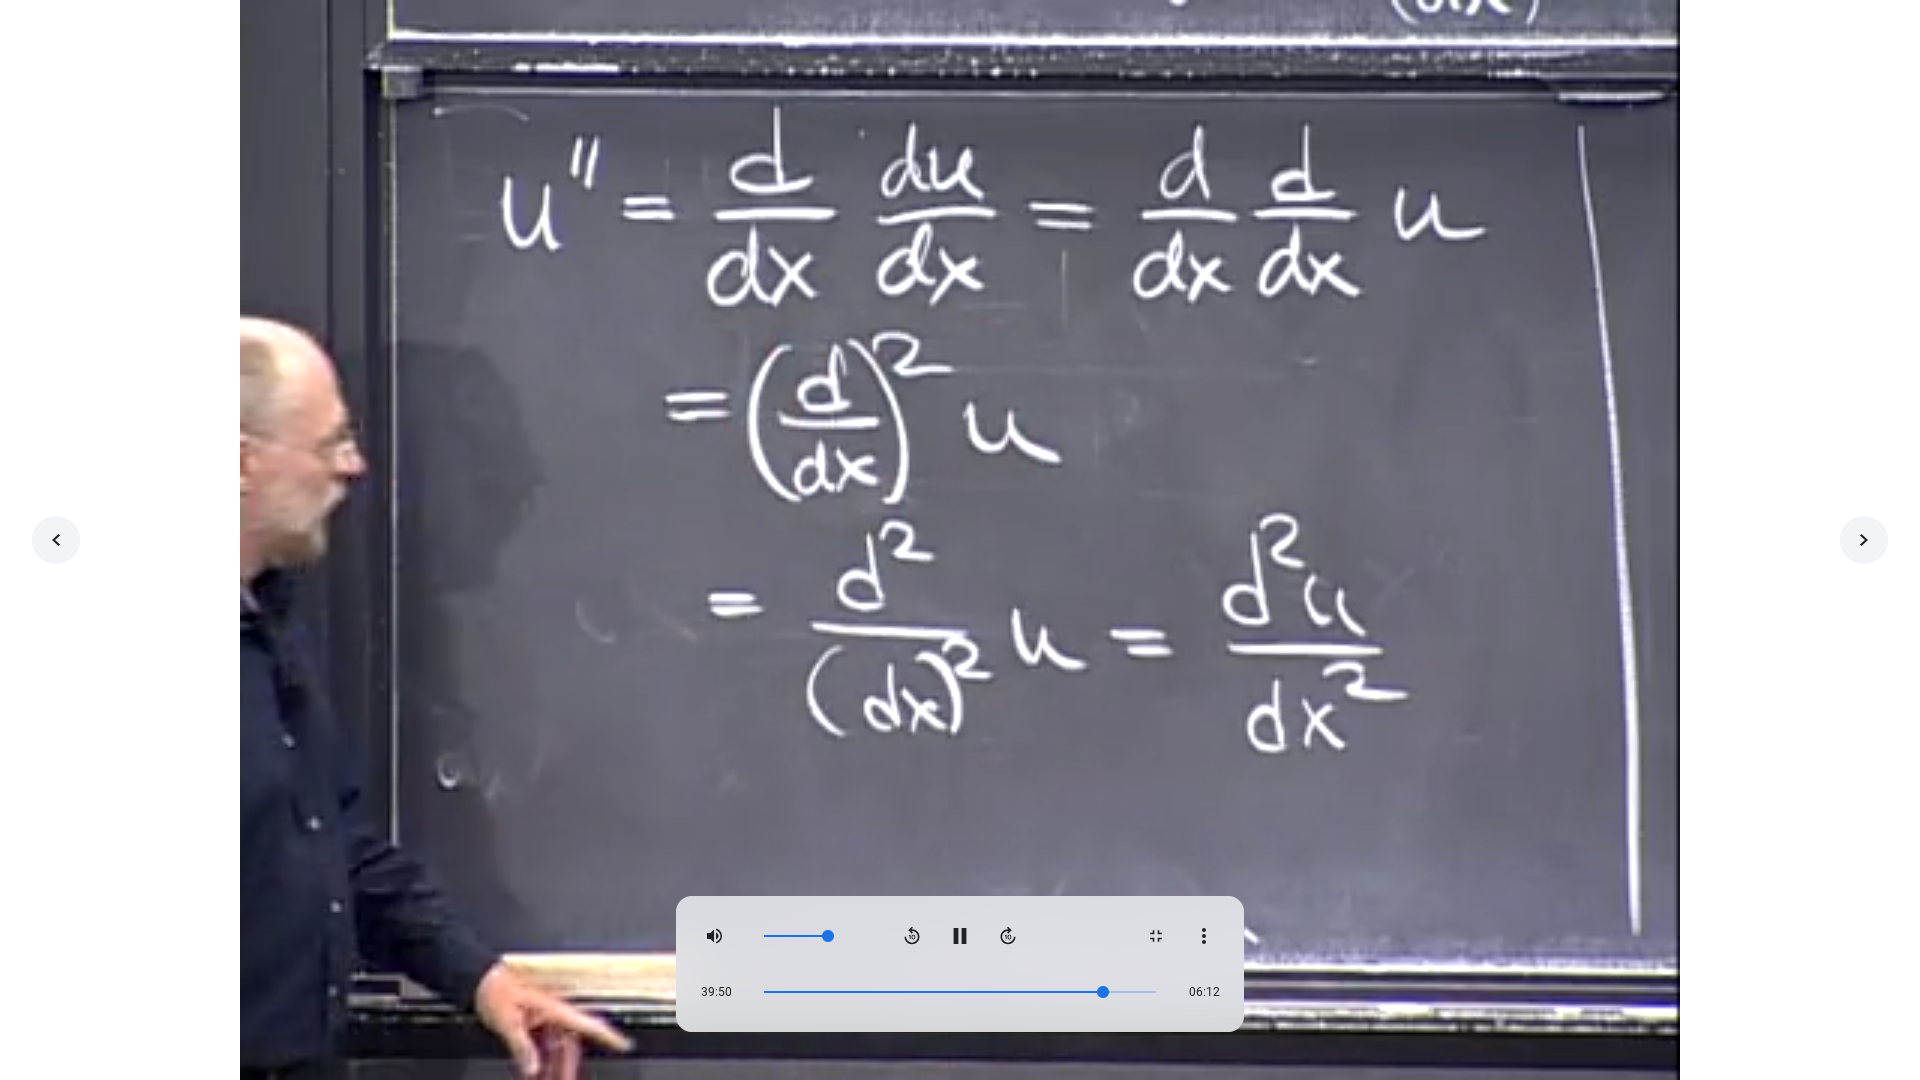 (dx)
u'' = d/dx du/dx = d/dx d/dx u
= (d/dx)² u
= d²/(dx)² u = d²u/dx²
39:50 06:12